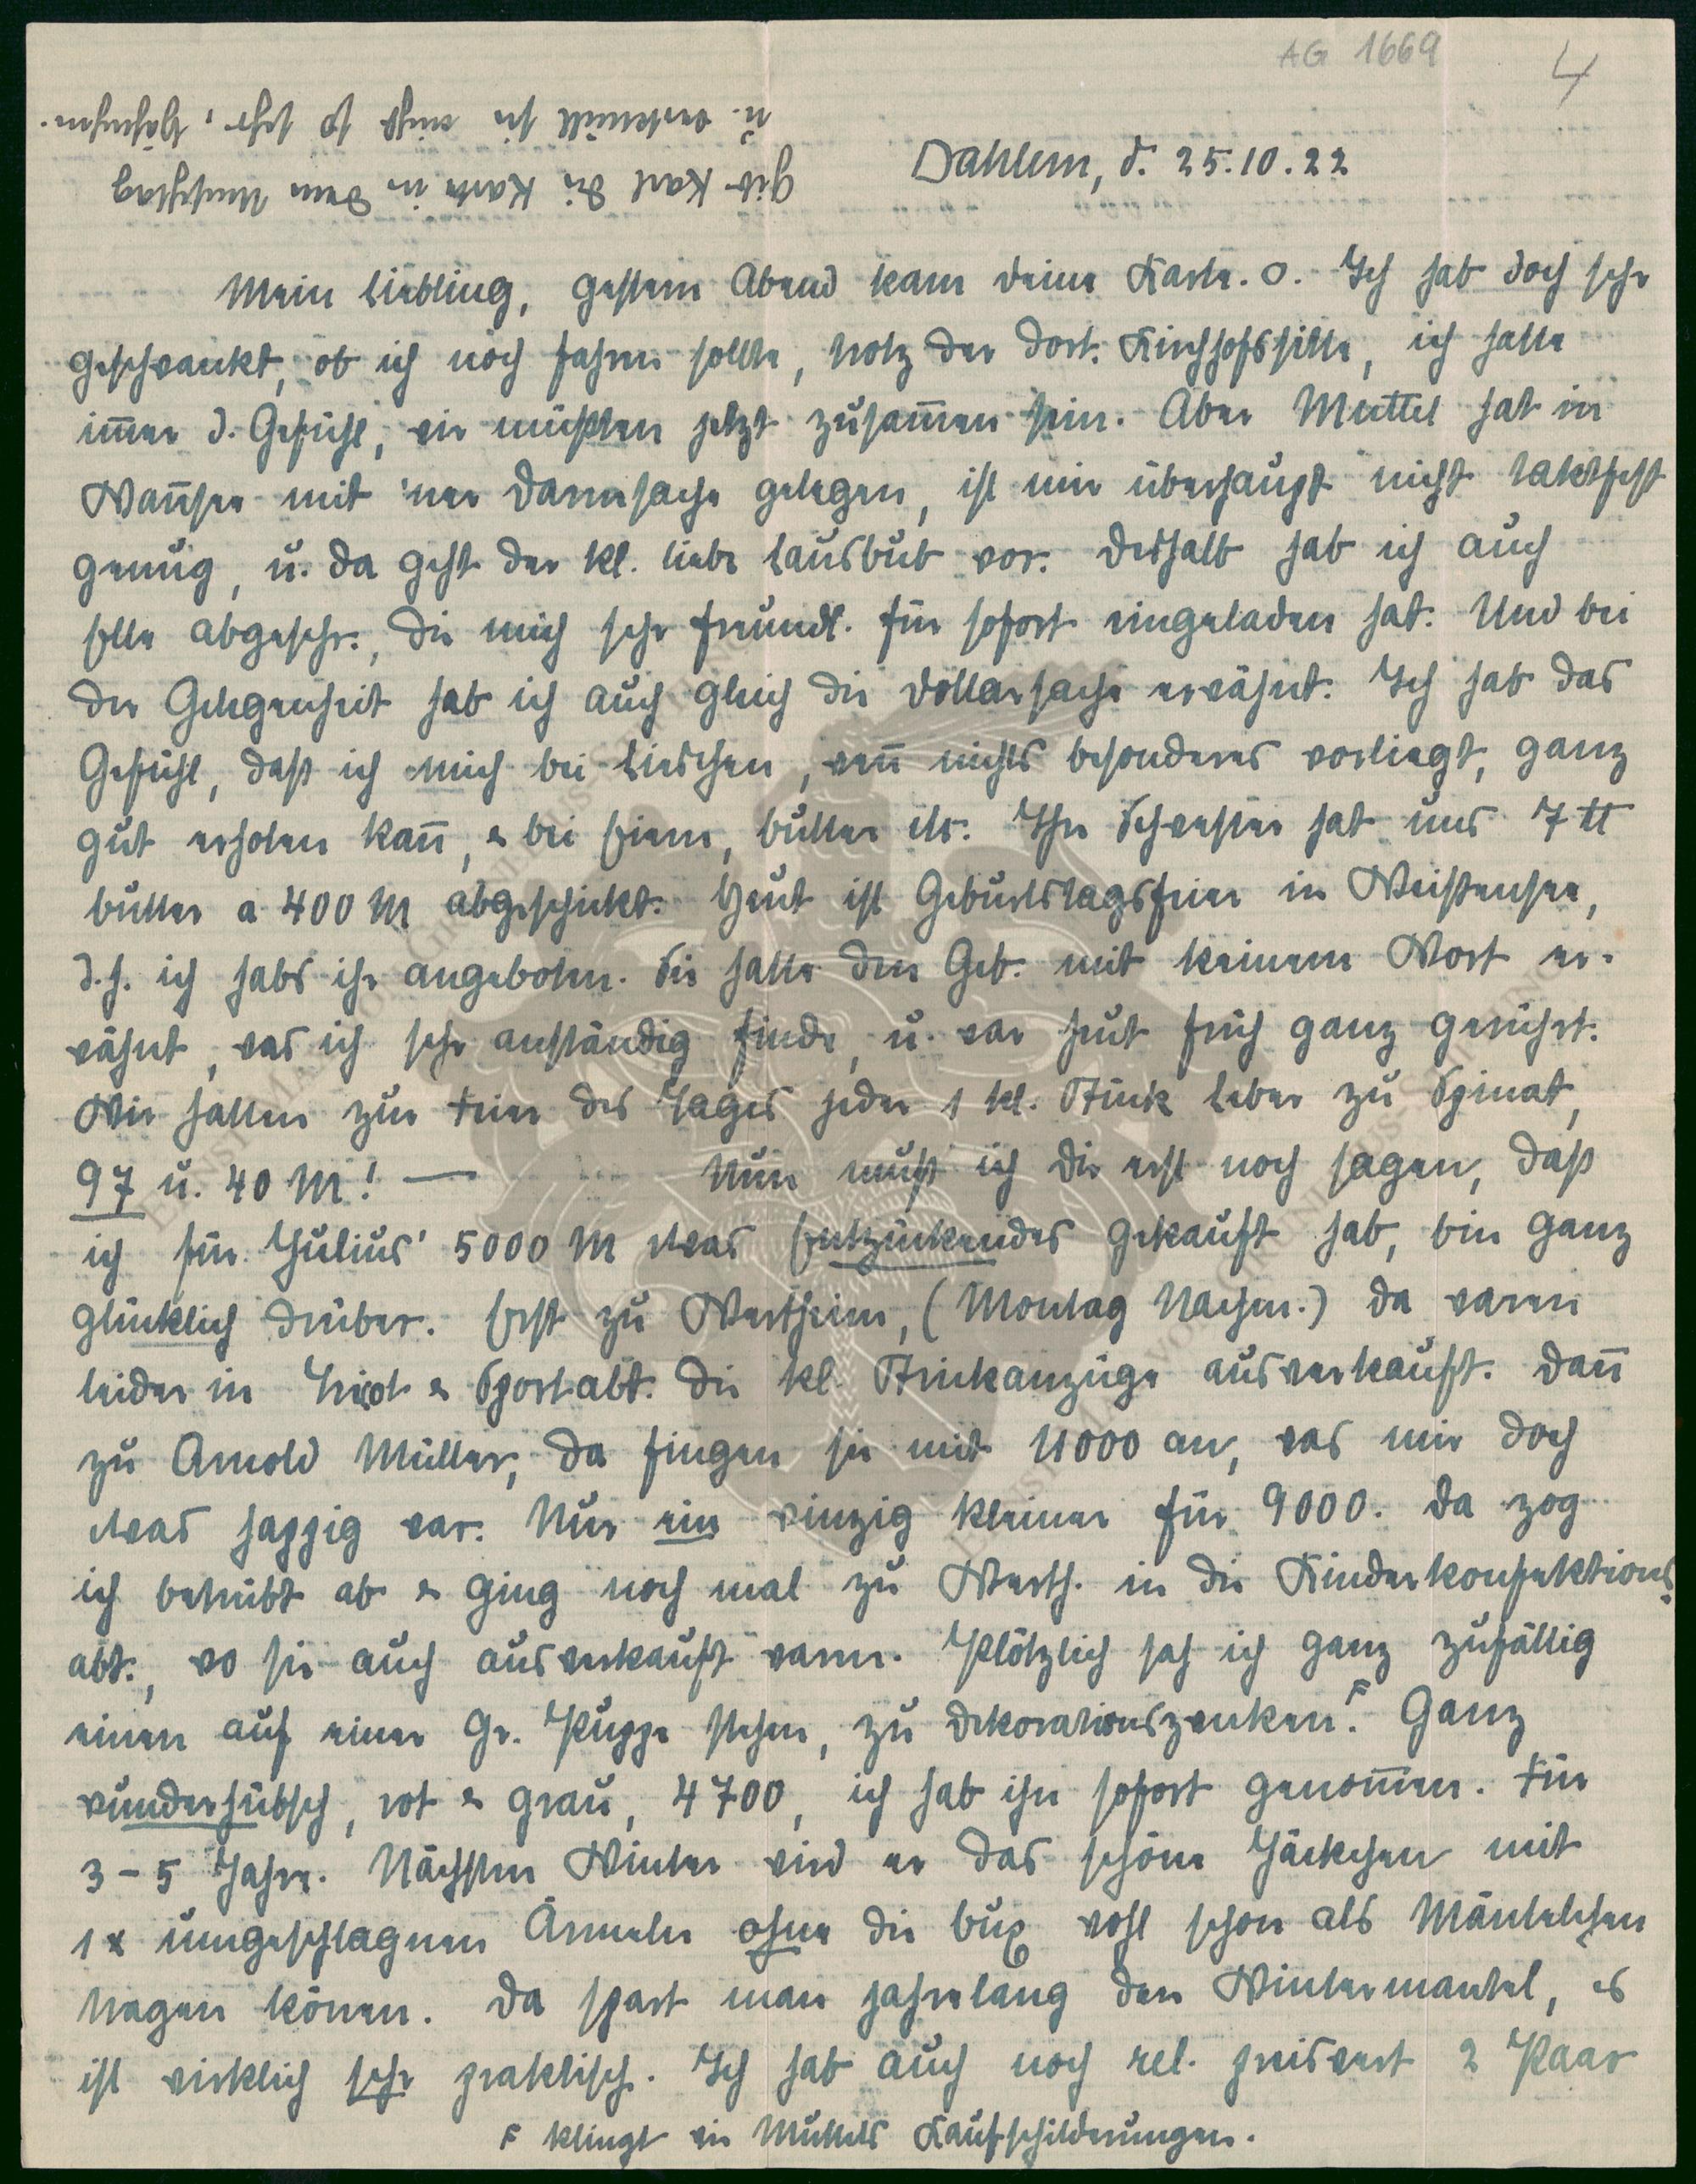 AG 1669
4
Gib Karl die Karte in dem Umschlag
u. verknüll sie nicht so sehr,
Dahlem, d. 25.10.22
Mein Liebling, gestern Abend kam deine Karte. O. Ich hab doch sehr
geschwankt, ob ich noch fahren sollte, trotz der dort. Kirchhofsstille, ich hatte
im̅er d. Gefühl, wir müssten jetzt zusam̅en sein. Aber Muttel hat in
Wan̅see mit 'ner Darmsache gelegen, ist mir überhaupt nicht taktfest
genug, u. da geht der kl. liebe Lausbub vor. Deshalb hab ich auch
Elle abgeschr., die mich sehr freundl. für sofort eingeladen hat. Und bei
der Gelegenheit hab ich auch gleich die Dollarsache erwähnt. Ich hab das
Gefühl, dass ich mich bei Lieschen, wen̅ nichts besonderes vorliegt, ganz
gut erholen kan̅, & bei Eiern, Butter etc. Ihre Schwester hat uns 7 ℔
Butter a 400 M abgeschickt. Heut ist Geburtstagsfeier in Weissensee,
d.h. ich habs ihr angeboten. Sie hatte den Geb. mit keinem Wort er-
wähnt, was ich sehr anständig finde, u. war heut früh ganz gerührt.
Wir hatten zur Feier des Tages jeder 1 kl. Stück Leber zu Spinat,
97 u. 40 M! — Nun muss ich dir erst noch sagen, dass
ich für Julius' 5000 M etwas Entzückendes gekauft hab, bin ganz
glücklich drüber. Erst zu Wertheim, (Montag Nachm.) da waren
leider in Tricot & Sportabt. die kl. Strickanzüge ausverkauft. Dan̅
zu Arnold Müller, da fingen sie mit 11000 an, was mir doch
etwas happig war. Nur ein winzig kleiner für 9000. Da zog
ich betrübt ab & ging noch mal zu Werth. in die Kinderkonfektions-
abt., wo sie auch ausverkauft waren. Plötzlich sah ich ganz zufällig
einen auf einer gr. Puppe stehen, zu Dekorationszwecken.F Ganz
wunderhübsch, rot & grau, 4700, ich hab ihn sofort genom̅en. Für
3-5 Jahre. Nächsten Winter wird er das schöne Jäckchen mit
1x umgeschlagnen Ärmeln ohne die Bux wohl schon als Mäntelchen
tragen kön̅en. Da spart man jahrelang den Wintermantel, es
ist wirklich sehr praktisch. Ich hab auch noch rel. preiswert 2 Paar
F klingt wie Muttels Kaufschilderungen.